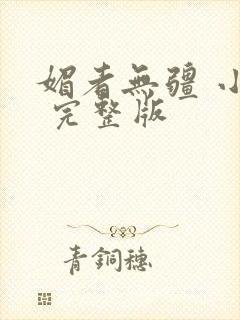 媚者無疆 小
完整版
青銅穗